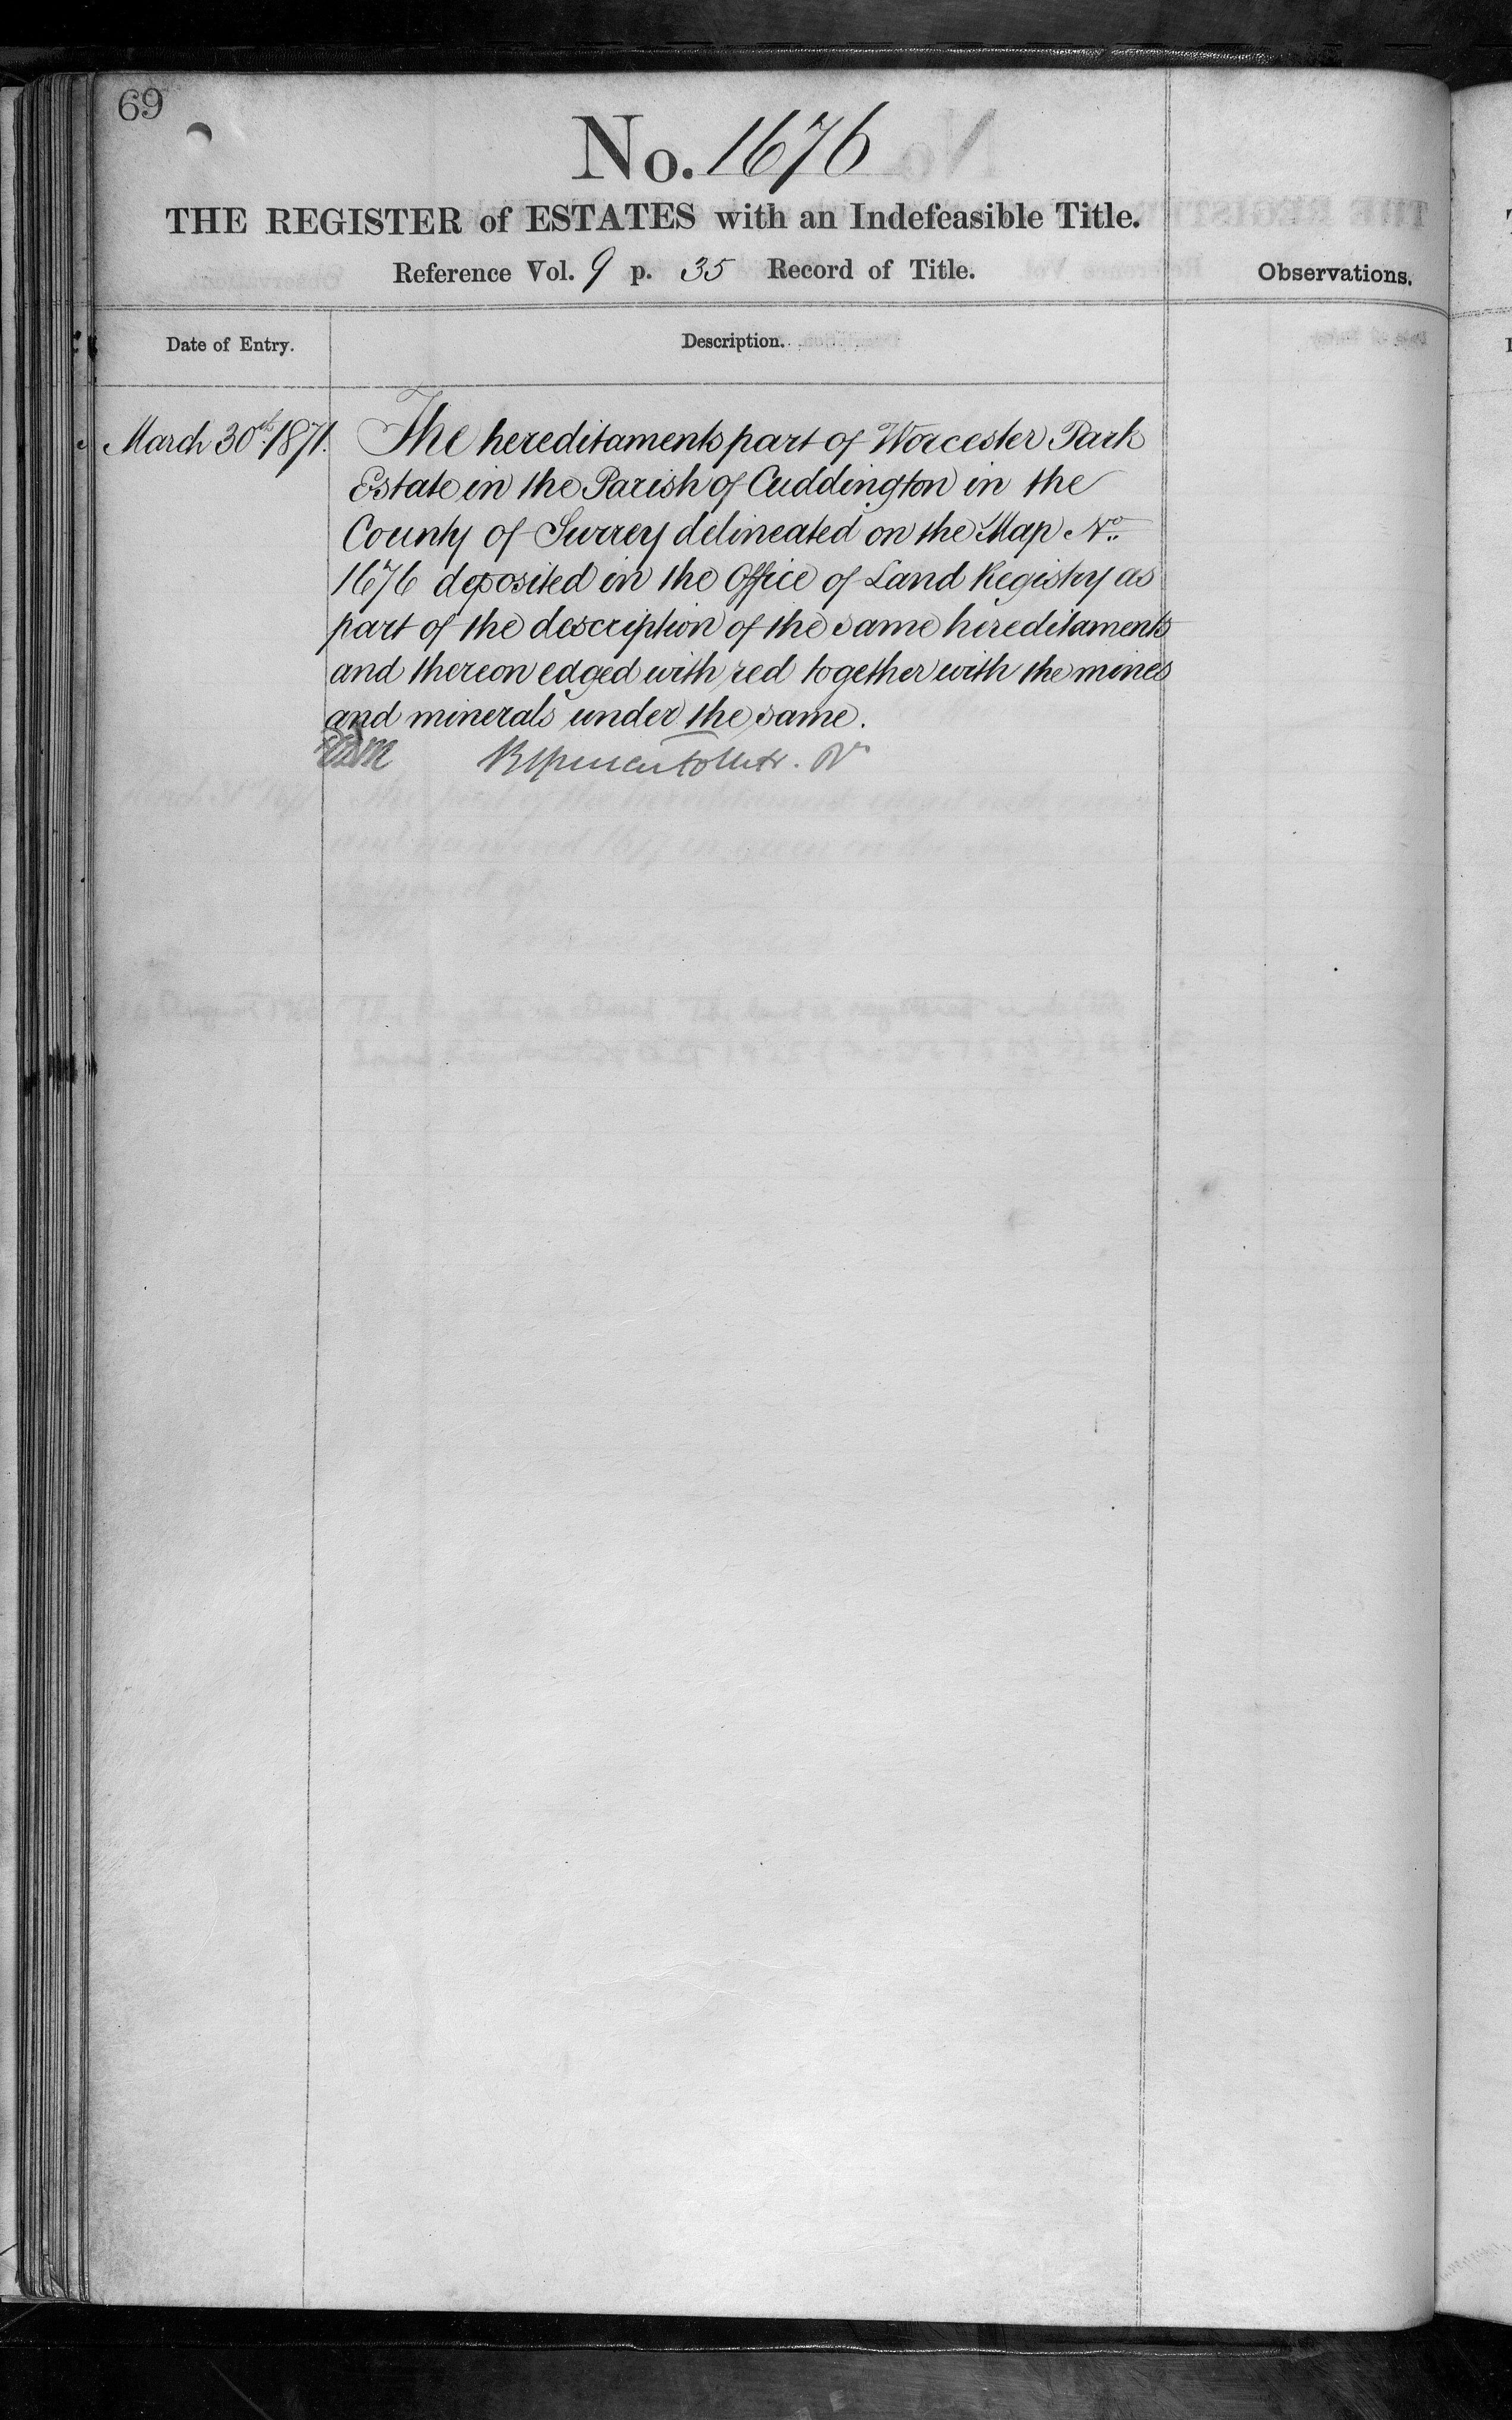 69
No. 1676
THE REGISTER of ESTATES with an Indefeasible Title.
Reference Vol. 9 p. 35 Record of Title.
Observations.
Date of Entry.
Description.
March 30th. 1871.
The hereditaments part of Worcester Park
Estate in the Parish of Cuddington in the
County of Surrey delineated on the Map No.
1676 deposited in the Office of Land Registry as
part of the description of the same hereditaments
and thereon edged with red together with the mines
and minerals under the same.